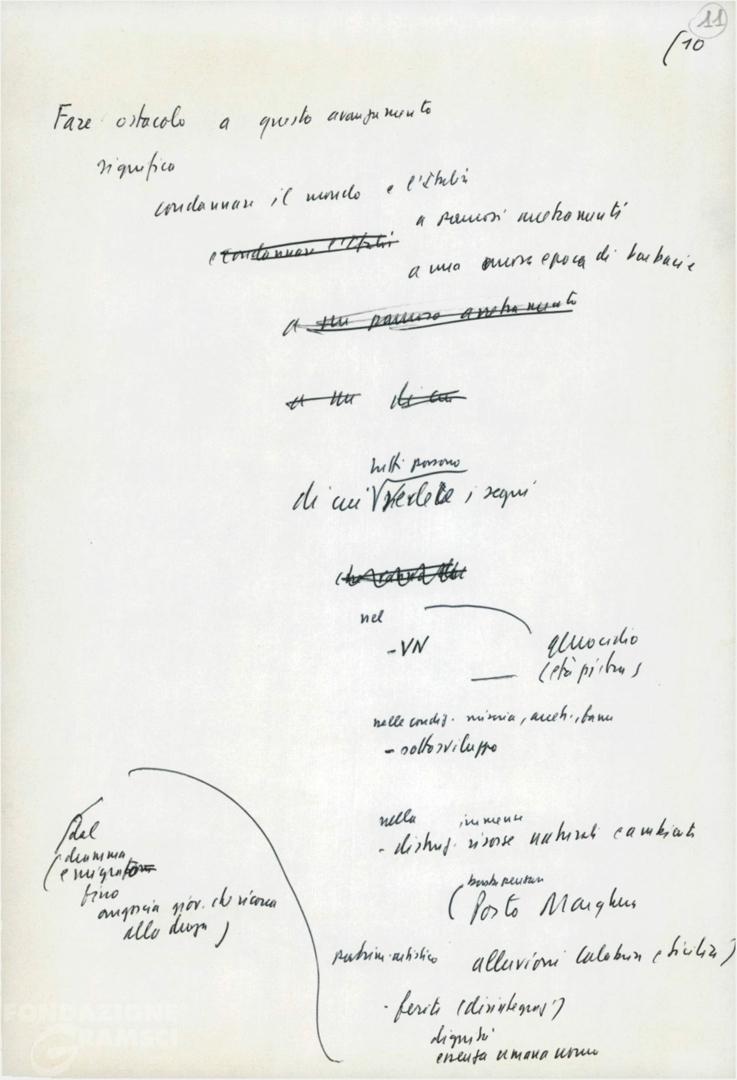 11
(10
Fare ostacolo a questo avanzamento
significa
condannare il mondo e l'Italia
a paurosi arretramenti
e condannare l'Italia
a una nuova epoca di barbarie
a un pauroso arretramento
a un di cui
tutti possono
di cui vedere i segni
nel
- VN
genocidio
(età pietra)
nelle condiz. miseria, arretr., fame
- sottosviluppo
nella immensa
- distruz. risorse naturali e ambienti
(basta pensare
Porto Marghera
patrim. artistico alluvioni Calabria e Sicilia)
- ferite (disintegraz.)
dignità
essenza umana uomo
dal
(dramma
emigraz
fino
angoscia giov. che ricorre
alla droga)
FONDAZIONE
GRAMSCI